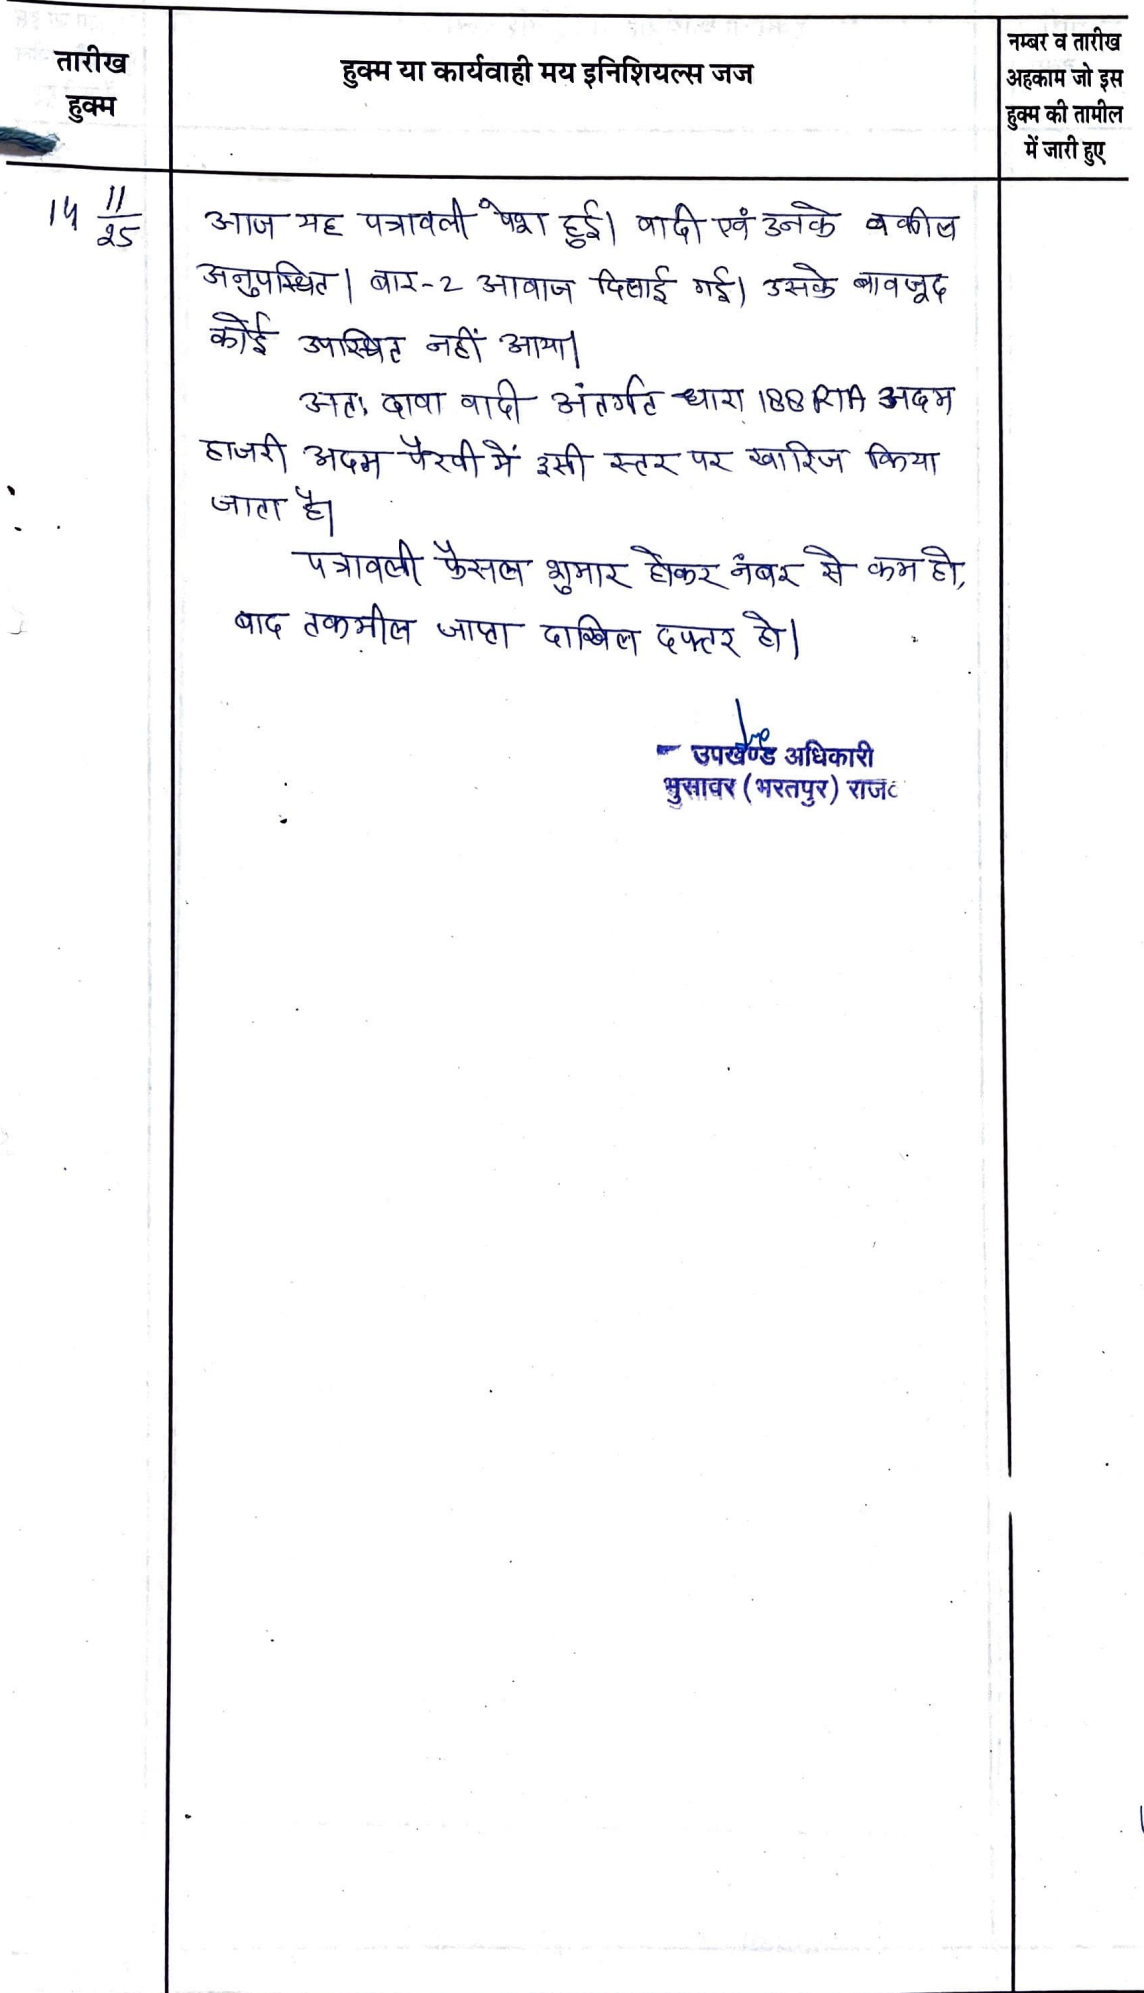 तारीख
हुक्म
हुक्म या कार्यवाही मय इनिशियल्स जज
नम्बर व तारीख
अहकाम जो इस
हुक्म की तामील
में जारी हुए
14 11/25
आज यह पत्रावली पेश हुई। वादी एवं उनके वकील
अनुपस्थित। बार-2 आवाज दिलाई गई। उसके बावजूद
कोई उपस्थित नहीं आया।
अतः दावा वादी अंतर्गत धारा 188 RTA अदम
हाजरी अदम पैरवी में इसी स्तर पर खारिज किया
जाता है।
पत्रावली फैसल शुमार होकर नंबर से कम हो,
बाद तकमील जाप्ता दाखिल दफ्तर हो।
उपखण्ड अधिकारी
भुसावर (भरतपुर) राज०